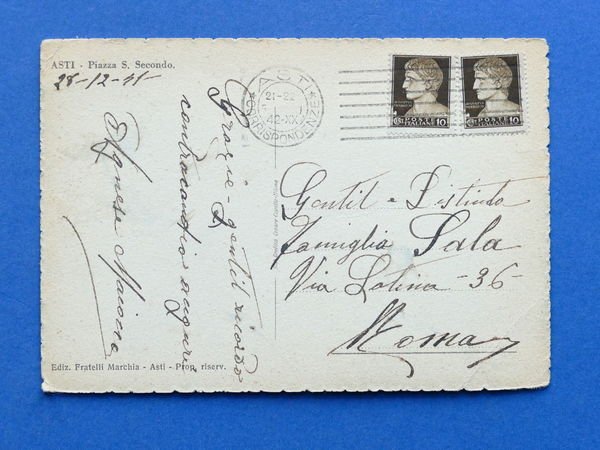 ASTI - Piazza S. Secondo.
28-12-41
Grazie - gentil ricordo
contracambio auguri
Agnese Maiocco
Ediz. Fratelli Marchia - Asti - Prop. riserv.
ASTI
21-22
1 1
42-XX
CORRISPONDENZE
POSTE ITALIANE
CENT 10
POSTE ITALIANE
CENT 10
Gentil e Distinta
Famiglia Sala
Via Latina - 36 -
Roma